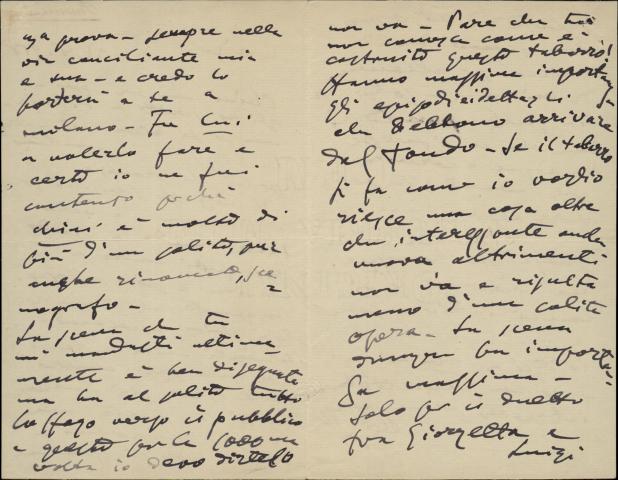 za prova - sempre nella
via conciliante mia
e sua - e credo lo
porterà a te a
Milano - Fu lui
a volerlo fare e
certo io ne fui
contento perchè
Chini è molto di
più d'un solito, pur
anche rinomato, sce
nografo -
La scena che tu
mi mandasti ultima
mente è ben disegnata
ma ha al solito tutto
l'affare verso il pubblico
e questo per la 1000ma
volta io devo dirtelo
non va - Pare che tu
non conosca come è
costruito questo tabarro!
Hanno massima importan
za gli episodi e i dettagli
che debbono arrivare
dal fondo - Se il tabarro
si fa come io voglio
riesce una cosa oltre
che interessante anche
nuova altrimenti
non va e risulta
meno d'una solita
opera - La scena
dunque ha importan
za massima -
Solo per il duetto
fra Giorgetta e
Luigi